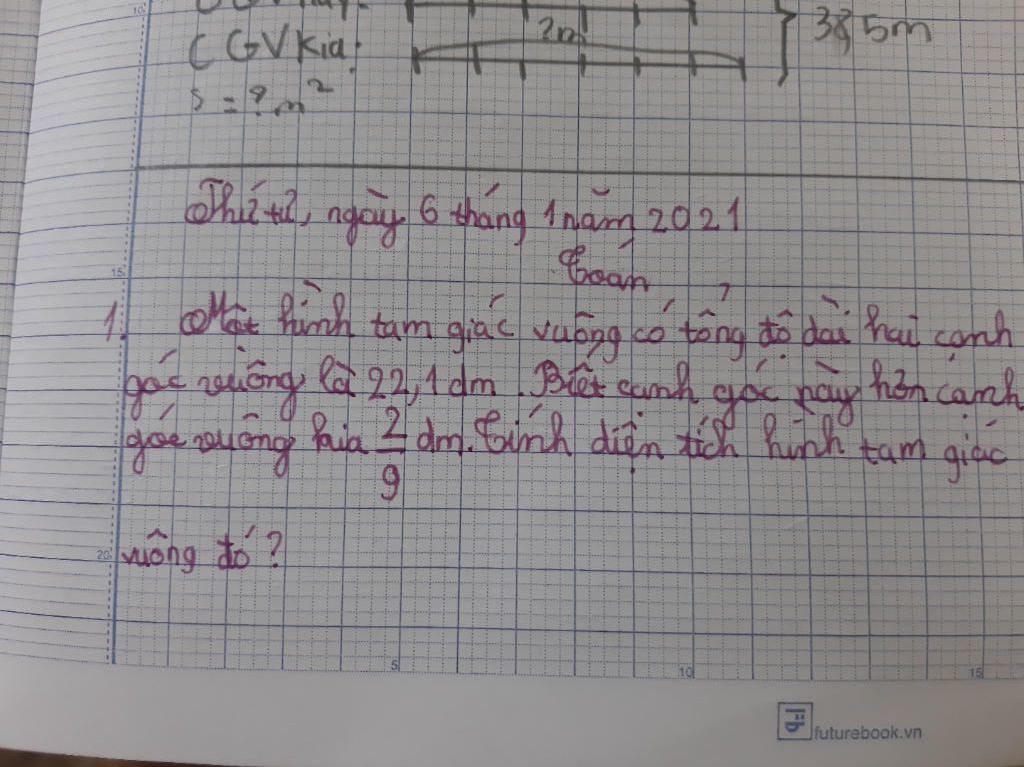 10
CGV kia:
2m
38,5m
S = ? m²
Thứ tư, ngày 6 tháng 1 năm 2021
15
Toán
1. Một hình tam giác vuông có tổng độ dài hai cạnh
góc vuông là 22,1 dm. Biết cạnh góc này hơn cạnh
góc vuông kia 2/9 dm. Tính diện tích hình tam giác
20 vuông đó?
5 10 15
futurebook.vn